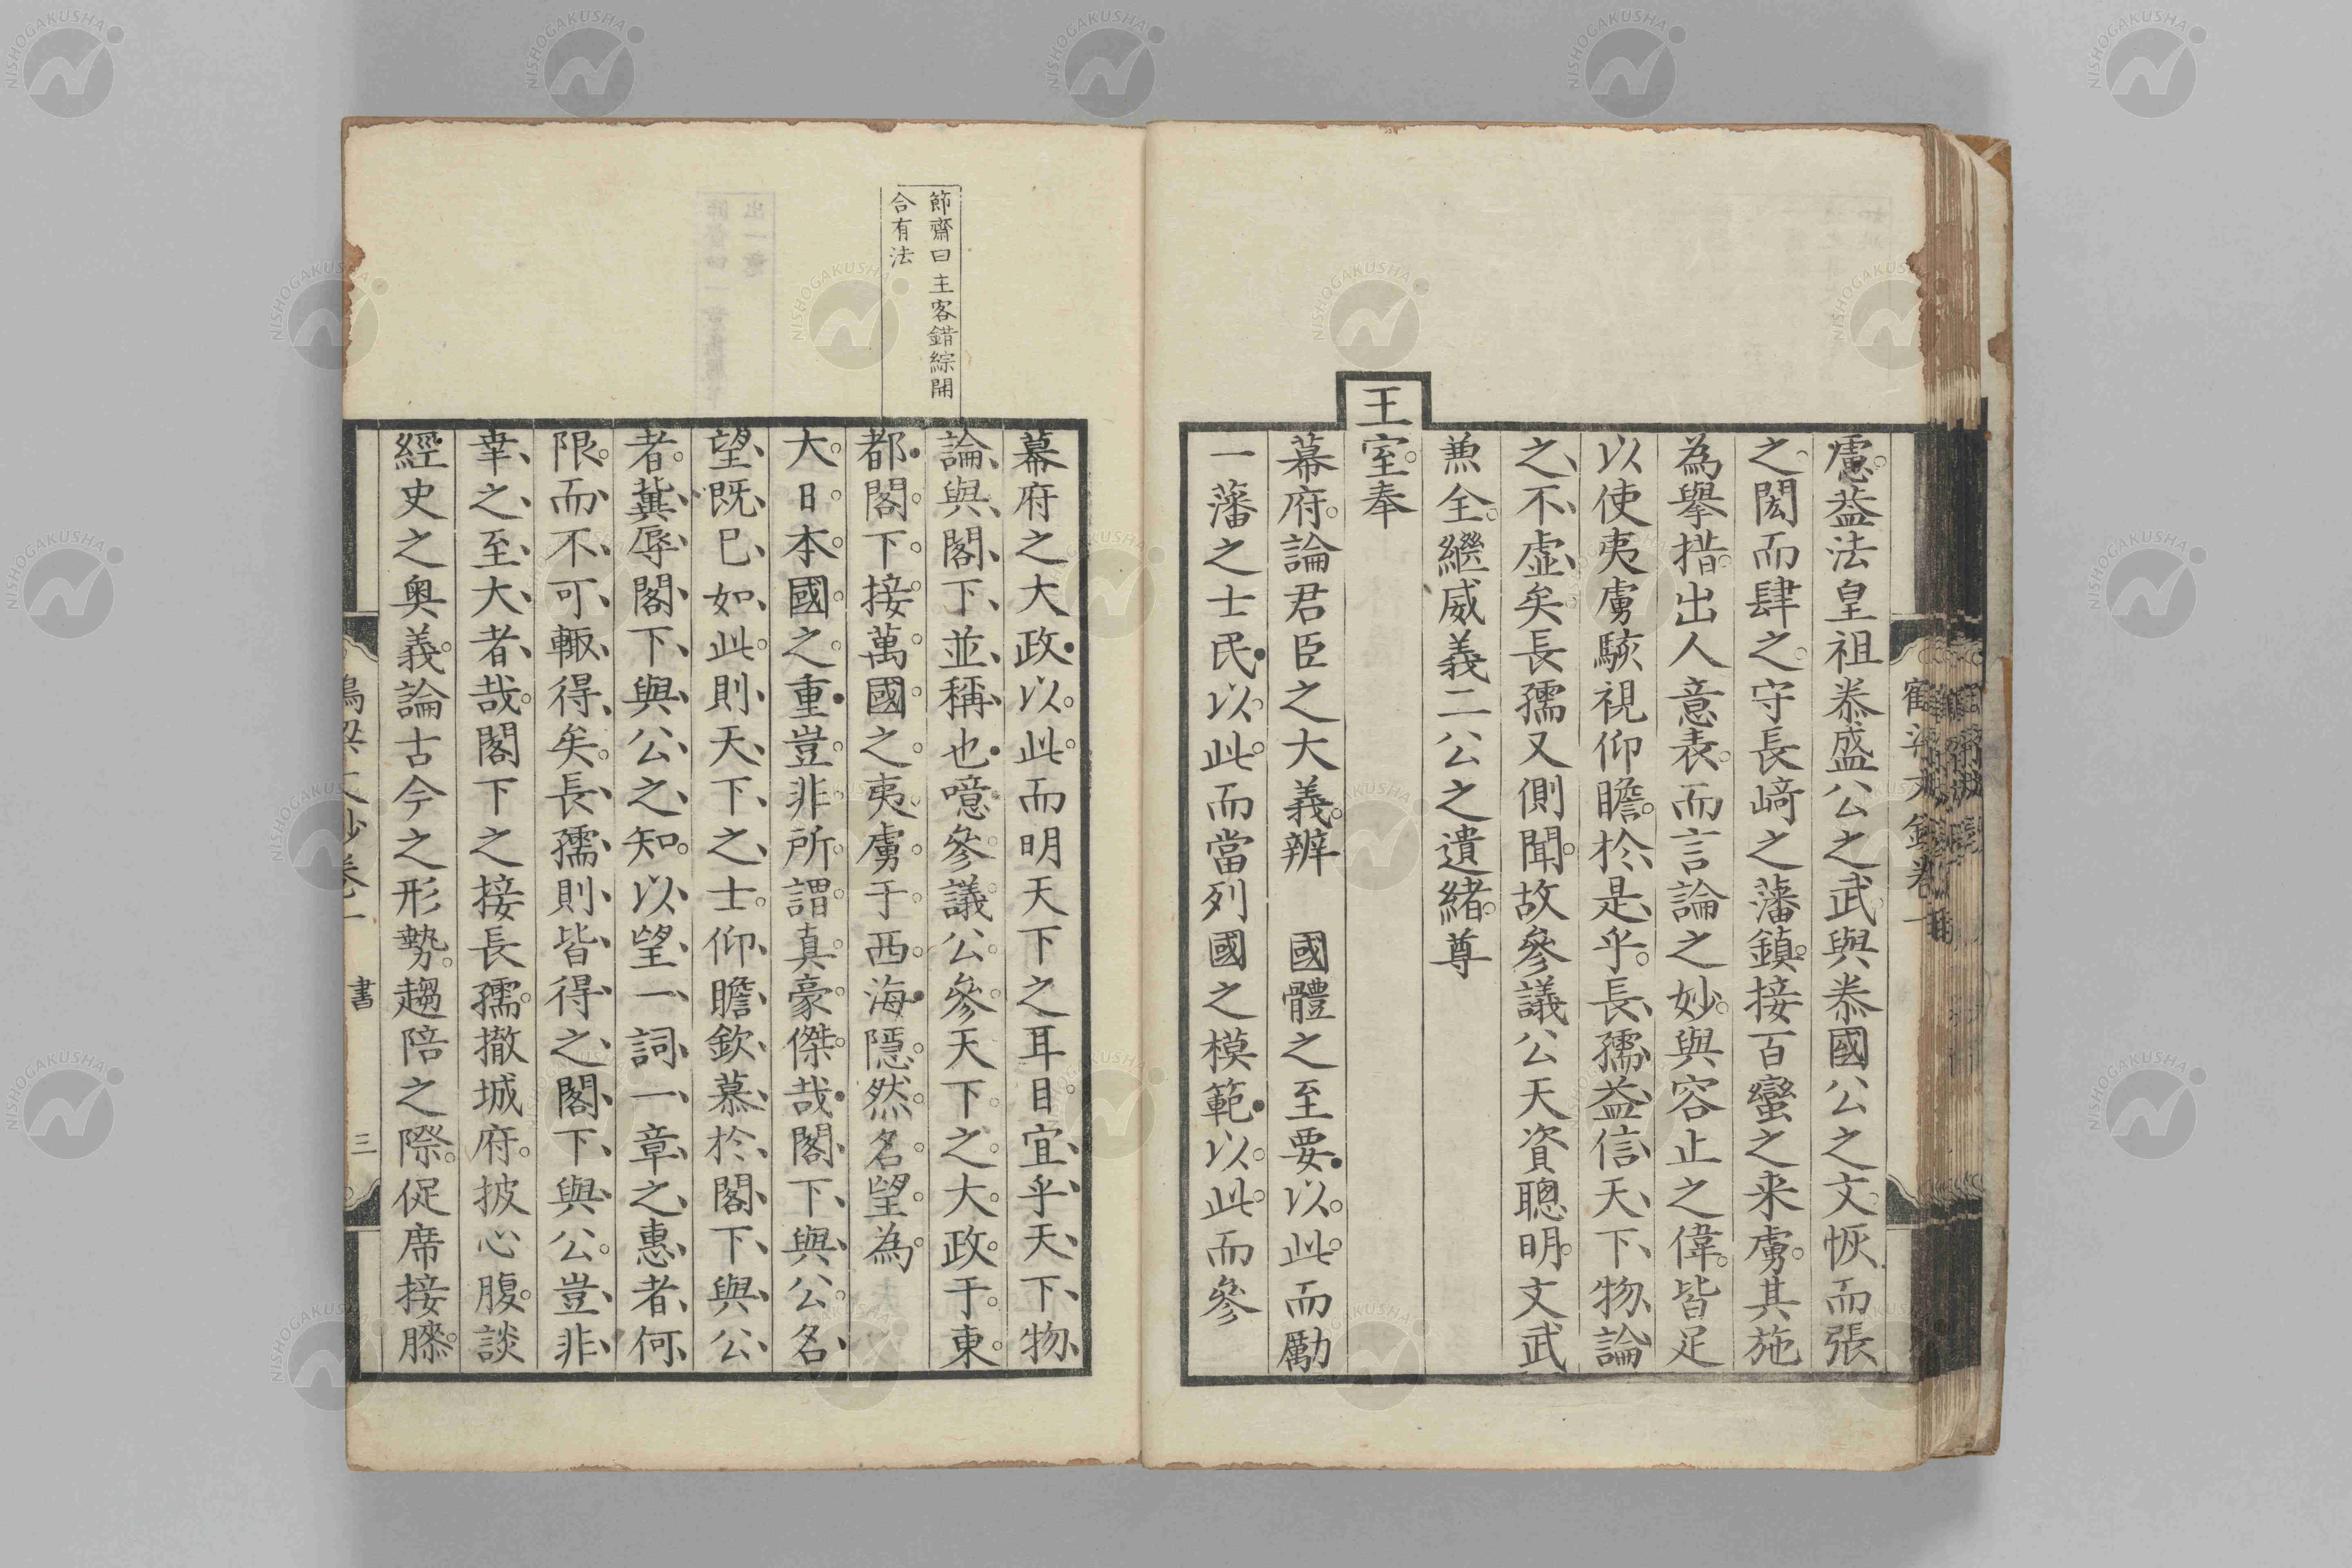 慮益法皇祖恭盛公之武與恭國公之文恢而張
之閎而肆之守長﨑之藩鎮接百蠻之来虜其施
為擧措出人意表而言論之妙與容止之偉皆足
以使夷虜駭視仰瞻於是乎長孺益信天下物論
之不虛矣長孺又側聞故參議公天資聰明文武
兼全繼威義二公之遺緒尊
王室奉
幕府論君臣之大義辨　國體之至要以此而勵
一藩之士民以此而當列國之模範以此而參
節齋曰主客錯綜開
合有法
幕府之大政以此而明天下之耳目宜乎天下物
論與閣下並稱也噫參議公參天下之大政于東
都閣下接萬國之夷虜于西海隱然名望為
大日本國之重豈非所謂真豪傑哉閣下與公名
望既已如此則天下之士仰瞻欽慕於閣下與公
者冀辱閣下與公之知以望一詞一章之惠者何
限而不可輙得矣長孺則皆得之閣下與公豈非
幸之至大者哉閣下之接長孺撤城府披心腹談
經史之奥義論古今之形勢趨陪之際促席接膝
書
三
NISHOGAKUSHA